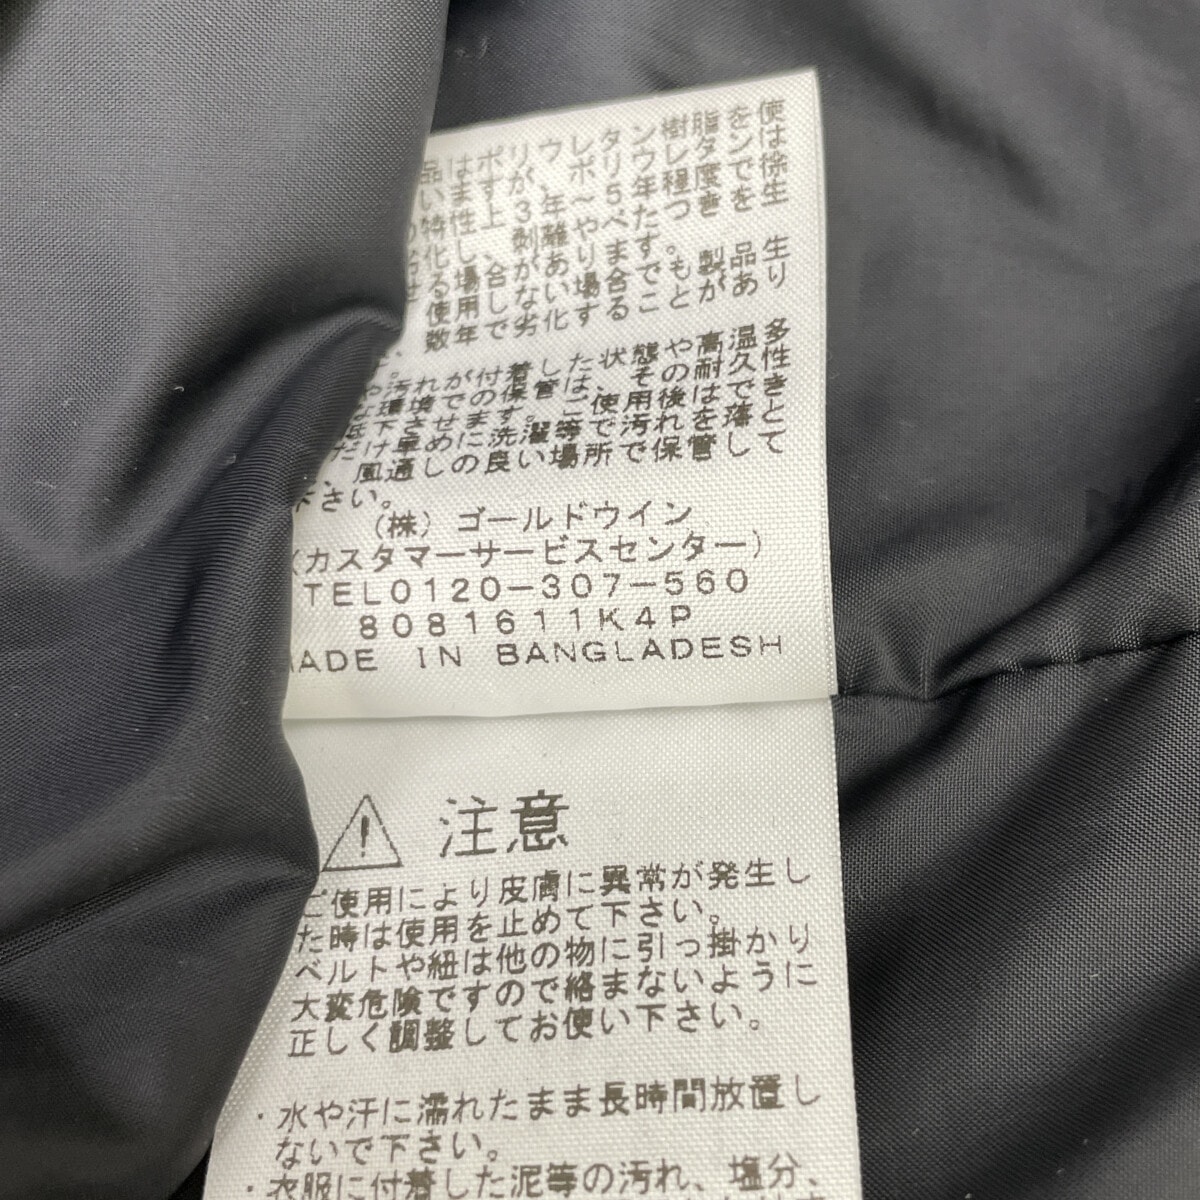 品はポリウレタン樹脂を使
いますが、ポリウレタンは
特性上3~5年程度で徐
化し、剥離やべたつきを生
る場合があります。
使用しない場合でも製品生
、数年で劣化することがあり
す。
や汚れが付着した状態や高温多
な環境での保管は、その耐久性
低下させます。ご使用後はでき
だけ早めに洗濯等で汚れを落と
、風通しの良い場所で保管して
下さい。
(株)ゴールドウイン
(カスタマーサービスセンター)
TEL0120-307-560
8081611K4P
MADE IN BANGLADESH
注意
ご使用により皮膚に異常が発生し
た時は使用を止めて下さい。
ベルトや紐は他の物に引っ掛かり
大変危険ですので絡まないように
正しく調整してお使い下さい。
・水や汗に濡れたまま長時間放置し
ないで下さい。
・衣服に付着した泥等の汚れ、塩分、